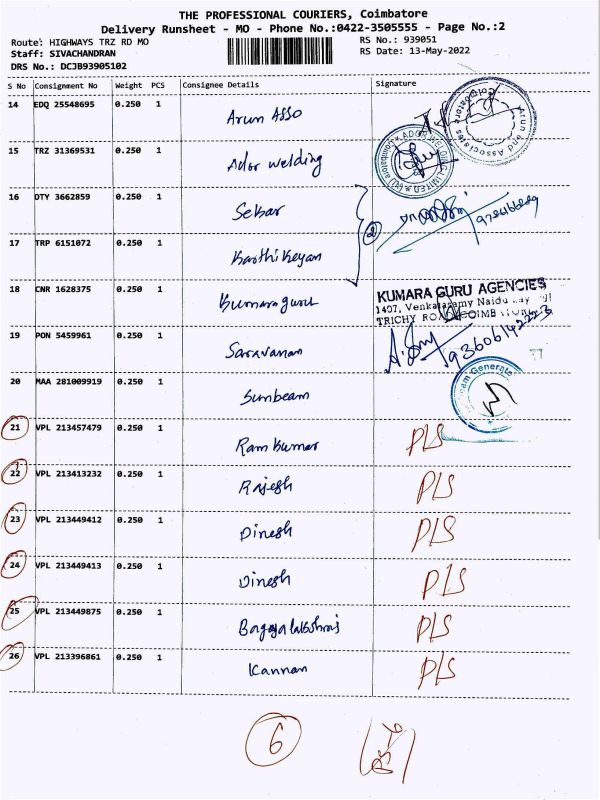 THE PROFESSIONAL COURIERS, Coimbatore
Delivery Runsheet - MO - Phone No.:0422-3505555 - Page No.:2
Route: HIGHWAYS TRZ RD MO
RS No.: 939051
Staff: SIVACHANDRAN
RS Date: 13-May-2022
DRS No.: DCJB93905102
S No Consignment No Weight PCS Consignee Details Signature
14 EDQ 25548695 0.250 1 Arun ASSO
Arun and Associates Coimbatore
15 TRZ 31369531 0.250 1 Ador welding
ADOR WELDING LIMITED
16 DTY 3662859 0.250 1 Sekar
2
17 TRP 6151072 0.250 1 Karthikeyan
18 CNR 1628375 0.250 1 Kumaraguru
KUMARA GURU AGENCIES
1407, Venkatasamy Naidu
TRICHY ROAD, COIMBATORE
19 PON 5459961 0.250 1 Saravanan
20 MAA 281009919 0.250 1 Sunbeam
Generato
21 VPL 213457479 0.250 1 Ram Kumar PLS
22 VPL 213413232 0.250 1 Rajesh PLS
23 VPL 213449412 0.250 1 Dinesh PLS
24 VPL 213449413 0.250 1 Dinesh PLS
25 VPL 213449875 0.250 1 PLS
26 VPL 213396861 0.250 1 Kannan PLS
6